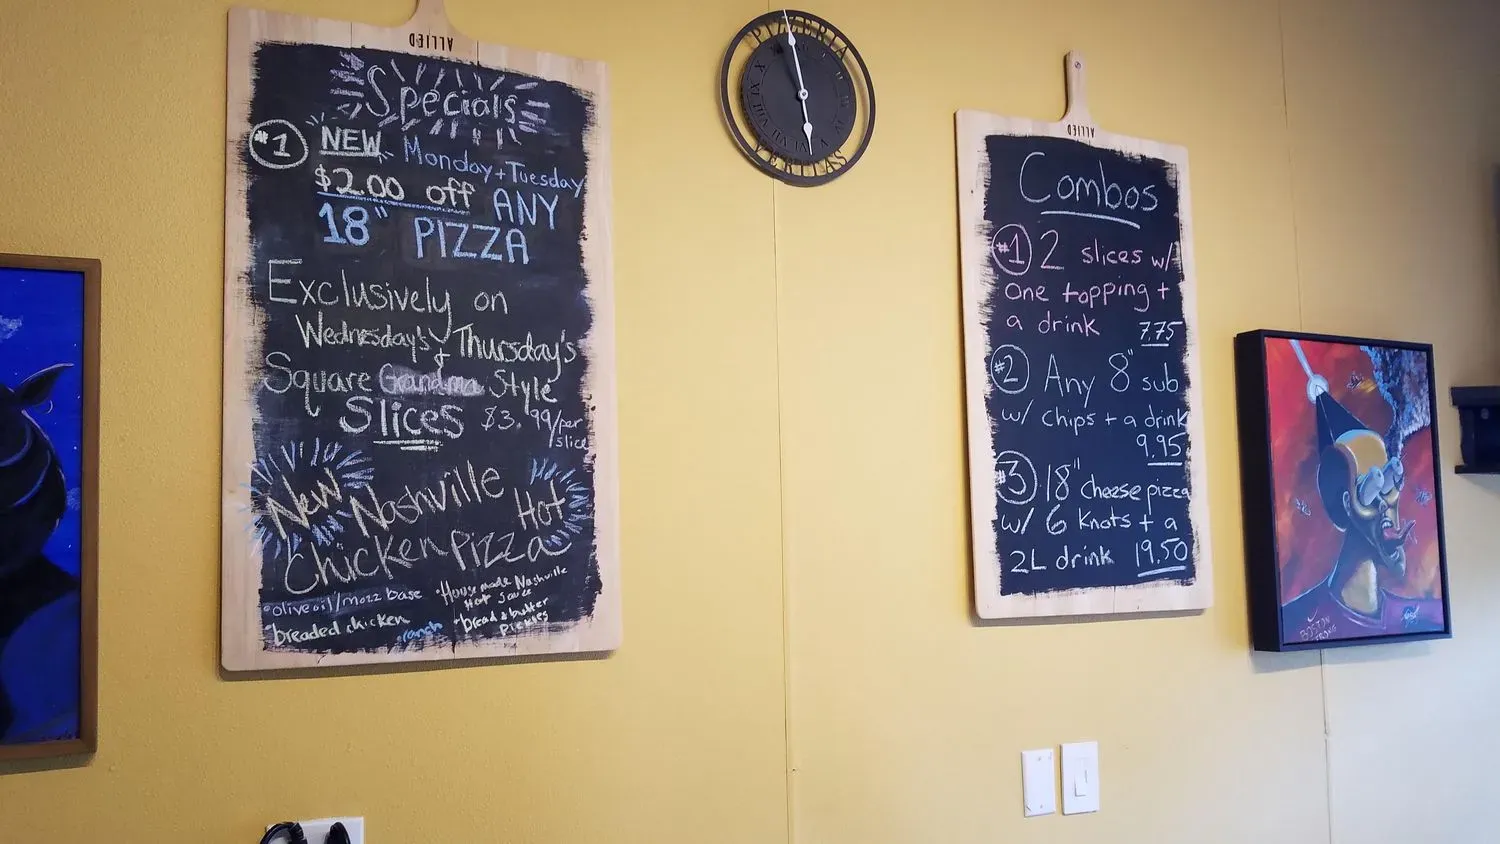 ALLIED
Specials
#1 NEW Monday + Tuesday
$2.00 off ANY
18" PIZZA
Exclusively on
Wednesday's + Thursday's
Square Grandma Style
Slices $3.99/per slice
New Nashville Hot
Chicken Pizza
•olive oil/mozz base
•breaded chicken
•ranch
•House made Nashville
Hot Sauce
•bread & butter
pickles
PIZZERIA
VERITAS
ALLIED
Combos
#1 2 slices w/
one topping +
a drink 7.75
#2 Any 8" sub
w/ chips + a drink
9.95
#3 18" cheese pizza
w/ 6 Knots + a
2L drink 19.50
BOSTON
STRONG